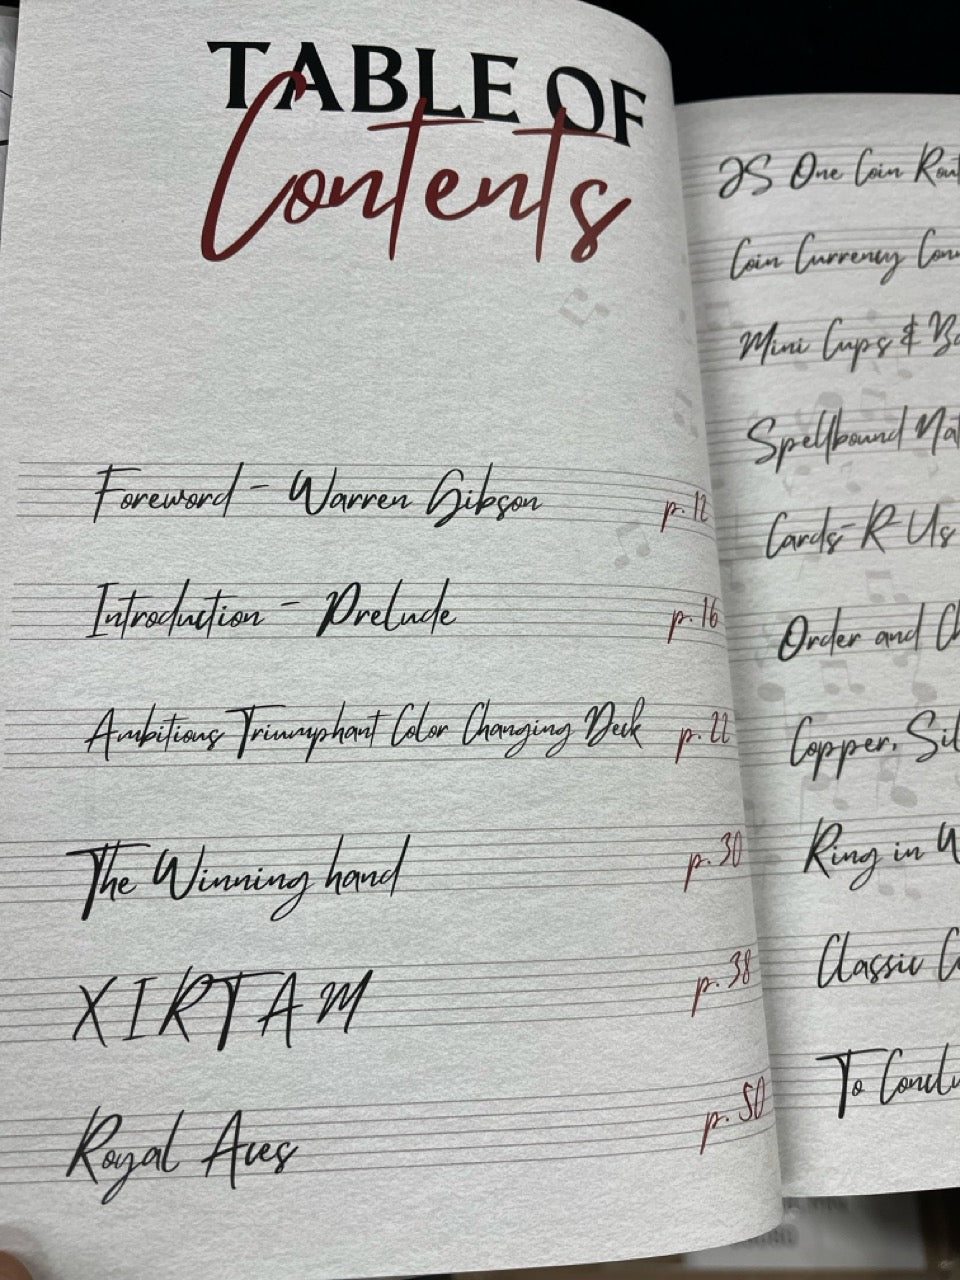 TABLE OF
Contents
Foreword - Warren Gibson p. 12
Introduction - Prelude p. 16
Ambitious Triumphant Color Changing Deck p. 22
The Winning hand p. 30
XIRTAM p. 38
Royal Aces p. 50
JS One Coin
Coin Currency
Mini Cups &
Spellbound
Cards-R-Us
Order and
Copper,
Ring in
Classic
To